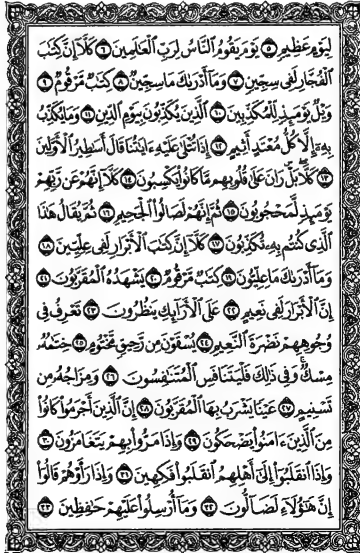 لِيَوْمٍ عَظِيمٍ ۝٥ يَوْمَ يَقُومُ النَّاسُ لِرَبِّ الْعَالَمِينَ ۝٦ كَلَّا إِنَّ كِتَابَ
الْفُجَّارِ لَفِي سِجِّينٍ ۝٧ وَمَا أَدْرَاكَ مَا سِجِّينٌ ۝٨ كِتَابٌ مَّرْقُومٌ ۝٩
وَيْلٌ يَوْمَئِذٍ لِّلْمُكَذِّبِينَ ۝١٠ الَّذِينَ يُكَذِّبُونَ بِيَوْمِ الدِّينِ ۝١١ وَمَا يُكَذِّبُ
بِهِ إِلَّا كُلُّ مُعْتَدٍ أَثِيمٍ ۝١٢ إِذَا تُتْلَىٰ عَلَيْهِ آيَاتُنَا قَالَ أَسَاطِيرُ الْأَوَّلِينَ
۝١٣ كَلَّا بَلْ رَانَ عَلَىٰ قُلُوبِهِم مَّا كَانُوا يَكْسِبُونَ ۝١٤ كَلَّا إِنَّهُمْ عَن رَّبِّهِمْ
يَوْمَئِذٍ لَّمَحْجُوبُونَ ۝١٥ ثُمَّ إِنَّهُمْ لَصَالُوا الْجَحِيمِ ۝١٦ ثُمَّ يُقَالُ هَٰذَا
الَّذِي كُنتُم بِهِ تُكَذِّبُونَ ۝١٧ كَلَّا إِنَّ كِتَابَ الْأَبْرَارِ لَفِي عِلِّيِّينَ ۝١٨
وَمَا أَدْرَاكَ مَا عِلِّيُّونَ ۝١٩ كِتَابٌ مَّرْقُومٌ ۝٢٠ يَشْهَدُهُ الْمُقَرَّبُونَ ۝٢١
إِنَّ الْأَبْرَارَ لَفِي نَعِيمٍ ۝٢٢ عَلَى الْأَرَائِكِ يَنظُرُونَ ۝٢٣ تَعْرِفُ فِي
وُجُوهِهِمْ نَضْرَةَ النَّعِيمِ ۝٢٤ يُسْقَوْنَ مِن رَّحِيقٍ مَّخْتُومٍ ۝٢٥ خِتَامُهُ
مِسْكٌ وَفِي ذَٰلِكَ فَلْيَتَنَافَسِ الْمُتَنَافِسُونَ ۝٢٦ وَمِزَاجُهُ مِن
تَسْنِيمٍ ۝٢٧ عَيْنًا يَشْرَبُ بِهَا الْمُقَرَّبُونَ ۝٢٨ إِنَّ الَّذِينَ أَجْرَمُوا كَانُوا
مِنَ الَّذِينَ آمَنُوا يَضْحَكُونَ ۝٢٩ وَإِذَا مَرُّوا بِهِمْ يَتَغَامَزُونَ ۝٣٠
وَإِذَا انقَلَبُوا إِلَىٰ أَهْلِهِمُ انقَلَبُوا فَكِهِينَ ۝٣١ وَإِذَا رَأَوْهُمْ قَالُوا
إِنَّ هَٰؤُلَاءِ لَضَالُّونَ ۝٣٢ وَمَا أُرْسِلُوا عَلَيْهِمْ حَافِظِينَ ۝٣٣